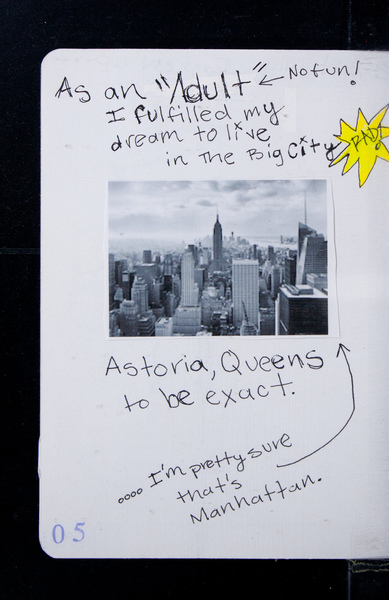 As an "Adult" ← No fun!
I fulfilled my
dream to live
in The Big City
RAD!
Astoria, Queens
to be exact.
.... I'm pretty sure
that's
Manhattan.
05